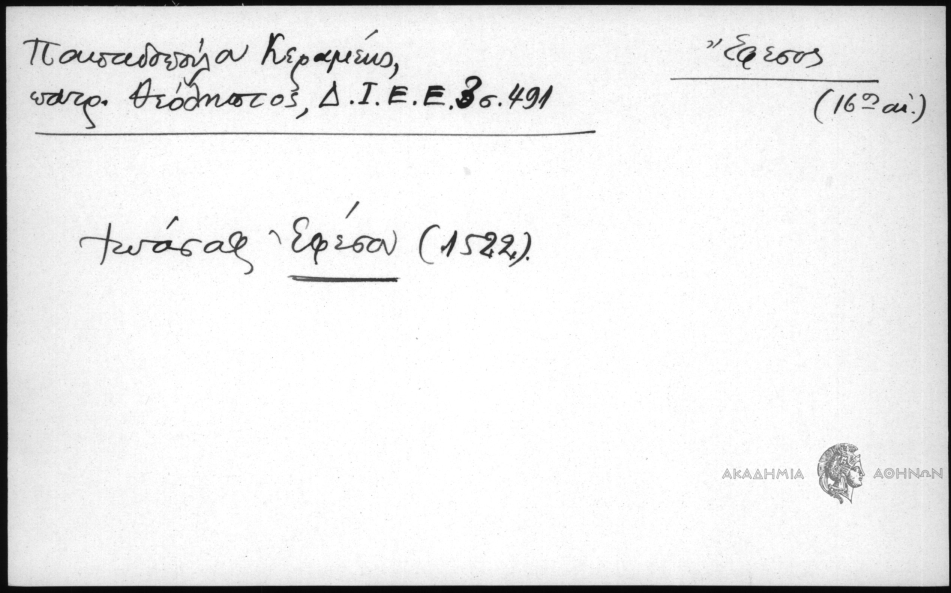 Παπαδοπούλου Κεραμέως,
πατρ. Θεόληπτος, Δ.Ι.Ε.Ε. 3 σ. 491
Ἔφεσος
(16ος αἰ.)
†Ἰωάσαφ Ἐφέσου (1522).
ΑΚΑΔΗΜΙΑ ΑΘΗΝΩΝ